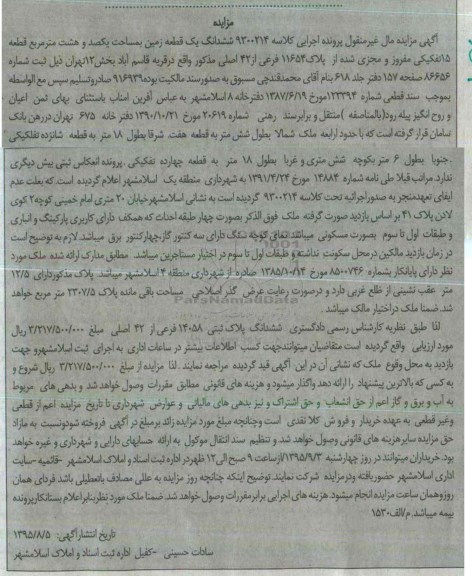 مزایده
آگهی مزایده مال غیرمنقول پرونده اجرایی کلاسه ۹۳۰۰۲۱۴ ششدانگ یک قطعه زمین بمساحت یکصد و هشت مترمربع قطعه
۱۵تفکیکی مفروز و مجزی شده از پلاک۱۱۶۵۴ فرعی از۴۲ اصلی مذکور واقع درقریه قاسم آباد بخش۱۲تهران ذیل ثبت شماره
۸۶۶۵۶ صفحه ۱۵۷ دفتر جلد ۶۱۸ بنام آقای محمدقندچی مسبوق به صدورسند مالکیت بوده۹۱۶۹۳۹ صادروتسلیم سپس مع الواسطه
بموجب سند قطعی شماره ۱۲۳۳۹۴مورخ ۱۳۸۷/۶/۱۹ دفترخانه ۸ اسلامشهر به عباس آفرین امناب باستثنای بهای ثمن اعیان
و روح انگیز پیله رود(بالمناصفه ) منتقل و برابرسند رهنی شماره ۲۰۶۱۹ مورخ ۱۳۹۰/۱۰/۲۱ دفتر خانه ۶۷۵ تهران دررهن بانک
سامان قرار گرفته است که با حدود اربعه ملک شمالا بطول شش متر به قطعه هفت. شرقا بطول ۱۸ متر به قطعه شانزده تفکیکی
.جنوبا بطول ۶ متر بکوچه شش متری و غربا بطول ۱۸ متر به قطعه چهارده تفکیکی .پرونده انعکاس ثبتی بیش دیگری
ندارد.مراتب قبلا طی نامه شماره ۱۴۸۸۴ مورخ ۱۳۹۱/۴/۲۴ به شهرداری منطقه یک اسلامشهر اعلام گردیده است.که بعلت عدم
ایفای تعهدمنجر به صدوراجرائیه تحت کلاسه ۹۳۰۰۲۱۴ گردیده است به نشانی اسلامشهرخیابان ۲۰ متری امام خمینی کوچه۲ کوی
لادن پلاک ۴۱ بر اساس بازدید صورت گرفته ملک فوق الذکر بصورت چهار طبقه احداث که همکف دارای کاربری پارکینگ و انباری
و طبقات اول تا سوم بصورت مسکونی میباشد.نمای کوچه سنگ دارای سه کنتور گاز،چهارکنتور برق میباشد.لازم به توضیح است
در زمان بازدید مالکین درمحل سکونت نداشته و طبقات اول تا سوم در اختیار مستاجرین میباشد. مطابق مدارک ارائه شده ملک مورد
نظر دارای پایانکار بشماره ۸۵۰۰۷۴۶ مورخ ۱۳۸۵/۱۰/۱۴ صادره از شهرداری منطقه ۴ اسلامشهر میباشد. پلاک مذکوردارای ۱۲/۵
متر عقب نشینی از ظلع غربی دارد و درصورت رعایت عرض گذر اصلاحی مساحت باقی مانده پلاک ۲۳۰۷/۵ متر مربع خواهد
شد.ضمنا ملک دراختیار مالک میباشد.
لذا طبق نظریه کارشناس رسمی دادگستری ششدانگ پلاک ثبتی ۱۴۰۵۸ فرعی از ۴۲ اصلی مبلغ ۳/۲۱۷/۵۰۰/۰۰۰ ریال
مورد ارزیابی واقع گردیده است متقاضیان میتوانندجهت کسب اطلاعات بیشتر در ساعات اداری به اجرای ثبت اسلامشهرو جهت
بازدید به محل وقوع ملک که نشانی آن در این آگهی قید گردیده مراجعه نمایند .لذا مزایده از مبلغ ۳/۲۱۷/۵۰۰/۰۰۰ ریال شروع و
به کسی که بالاترین پیشنهاد را ارائه دهد واگذار میشود و هزینه های قانونی مطابق مقررات وصول خواهد شد و بدهی های مربوط
به آب و برق و گاز اعم از حق انشعاب و حق اشتراک و نیز بدهی های مالیاتی و عوارض شهرداری تا تاریخ مزایده اعم از قطعی
وغیر قطعی به عهده خریدار و فروش کلا نقدی است وچنانچه مبلغ مورد مزایده زائد برمبلغ در آگهی فروخته شودونسبت به مازاد
حق مزایده سایرهزینه های قانونی وصول خواهد شد و تنظیم سند انتقال موکول به ارائه حسابهای دارایی و شهرداری و غیره خواهد
بود.خریداران میتوانند در روز چهارشنبه ۱۳۹۵/۹/۳ازساعت ۹ صبح الی۱۲ ظهردر اداره ثبت اسناد و املاک اسلامشهر -قائمیه-سایت
اداری اسلامشهر حضوریافته ودرمزایده شرکت نمایند.توضیح اینکه چنانچه روز مزایده به عللی مصادف باتعطیلی باشد فردای همان
روزوهمان ساعت مزایده انجام میشود.هزینه های اجرایی برابرمقررات وصول خواهد شد.ضمنا ملک مورد نظربنابراعلام بستانکارپرونده
بیمه میباشد.م/الف۱۵۳۰
تاریخ انتشارآگهی: ۱۳۹۵/۸/۵
سادات حسینی -کفیل اداره ثبت اسناد و املاک اسلامشهر
ParsNamadData